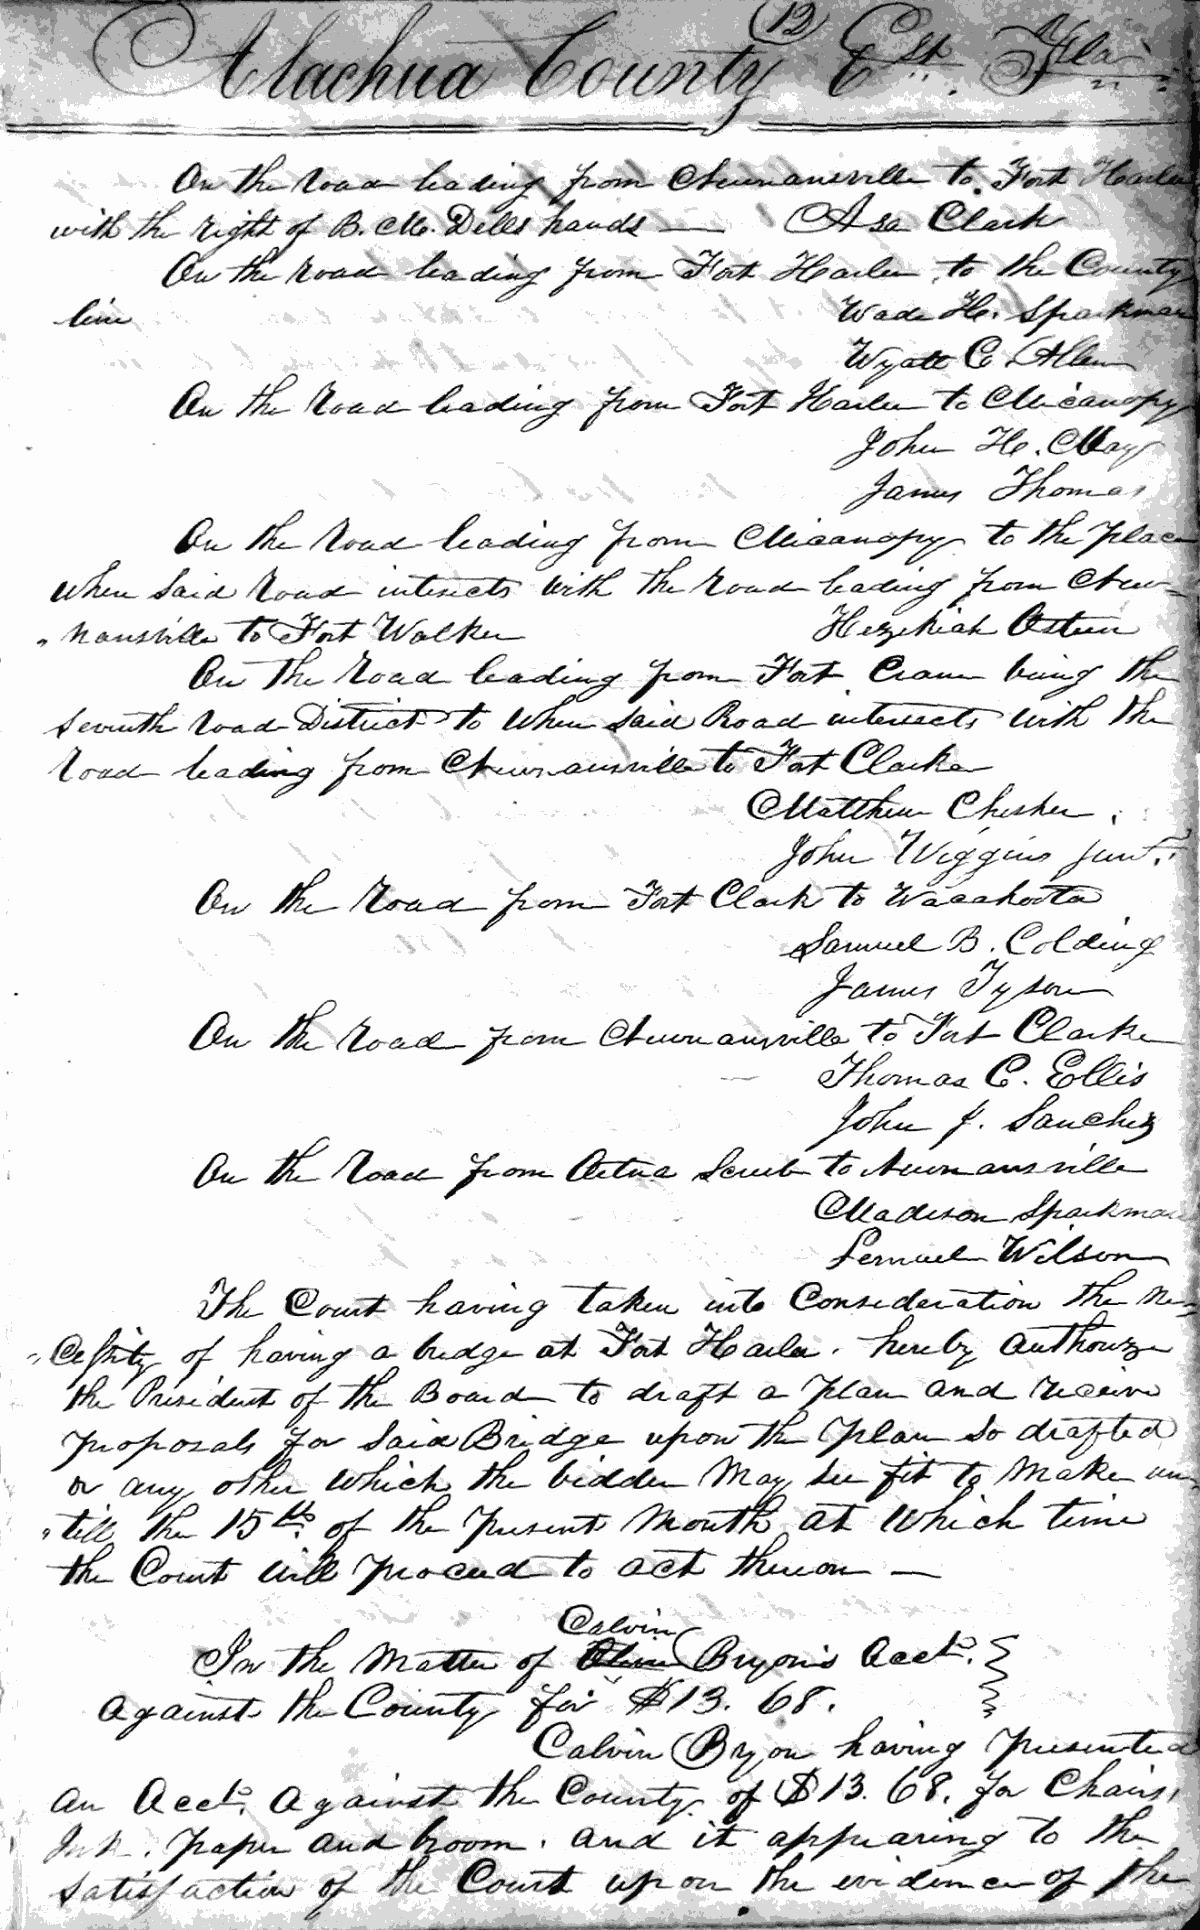 (12)
Alachua County Est. Fla.
On the road leading from Newnansville to Fort Harlee
with the right of B. M. Dells hands — Asa Clark
On the road leading from Fort Harlee to the County
line Wade H. Sparkman
Wyatt C. Allen
On the road leading from Fort Harlee to Micanopy
John H. May
James Thomas
On the road leading from Micanopy to the place
when said road intersects with the road leading from New=
"nansville to Fort Walker Hezekiah Osteen
On the road leading from Fort Crane being the
seventh road District to when said Road intersects with the
road leading from Newnansville to Fort Clarke
Matthew Chesher
John Wiggins junr.
On the road from Fort Clark to Wacahoota
Samuel B. Colding
James Tyson
On the road from Newnansville to Fort Clarke
Thomas C. Ellis
John J. Sanchez
On the road from Aetna Scrub to Newnansville
Madison Sparkman
Lemuel Wilson
The Court having taken into Consideration the ne=
"cessity of having a bridge at Fort Harlee. hereby authorize
the President of the Board to draft a plan and receive
proposals for said Bridge upon the plan so drafted
or any other which the bidder may see fit to make un
"till the 15th of the present month at which time
the Court will proceed to act thereon —
Calvin
In the matter of Bryon's Acct.
against the County for $13.68.
Calvin Bryon having presented
an Acct. against the County of $13.68. for Chairs,
Ink. paper and broom. and it appearing to the
satisfaction of the Court upon the evidence of the